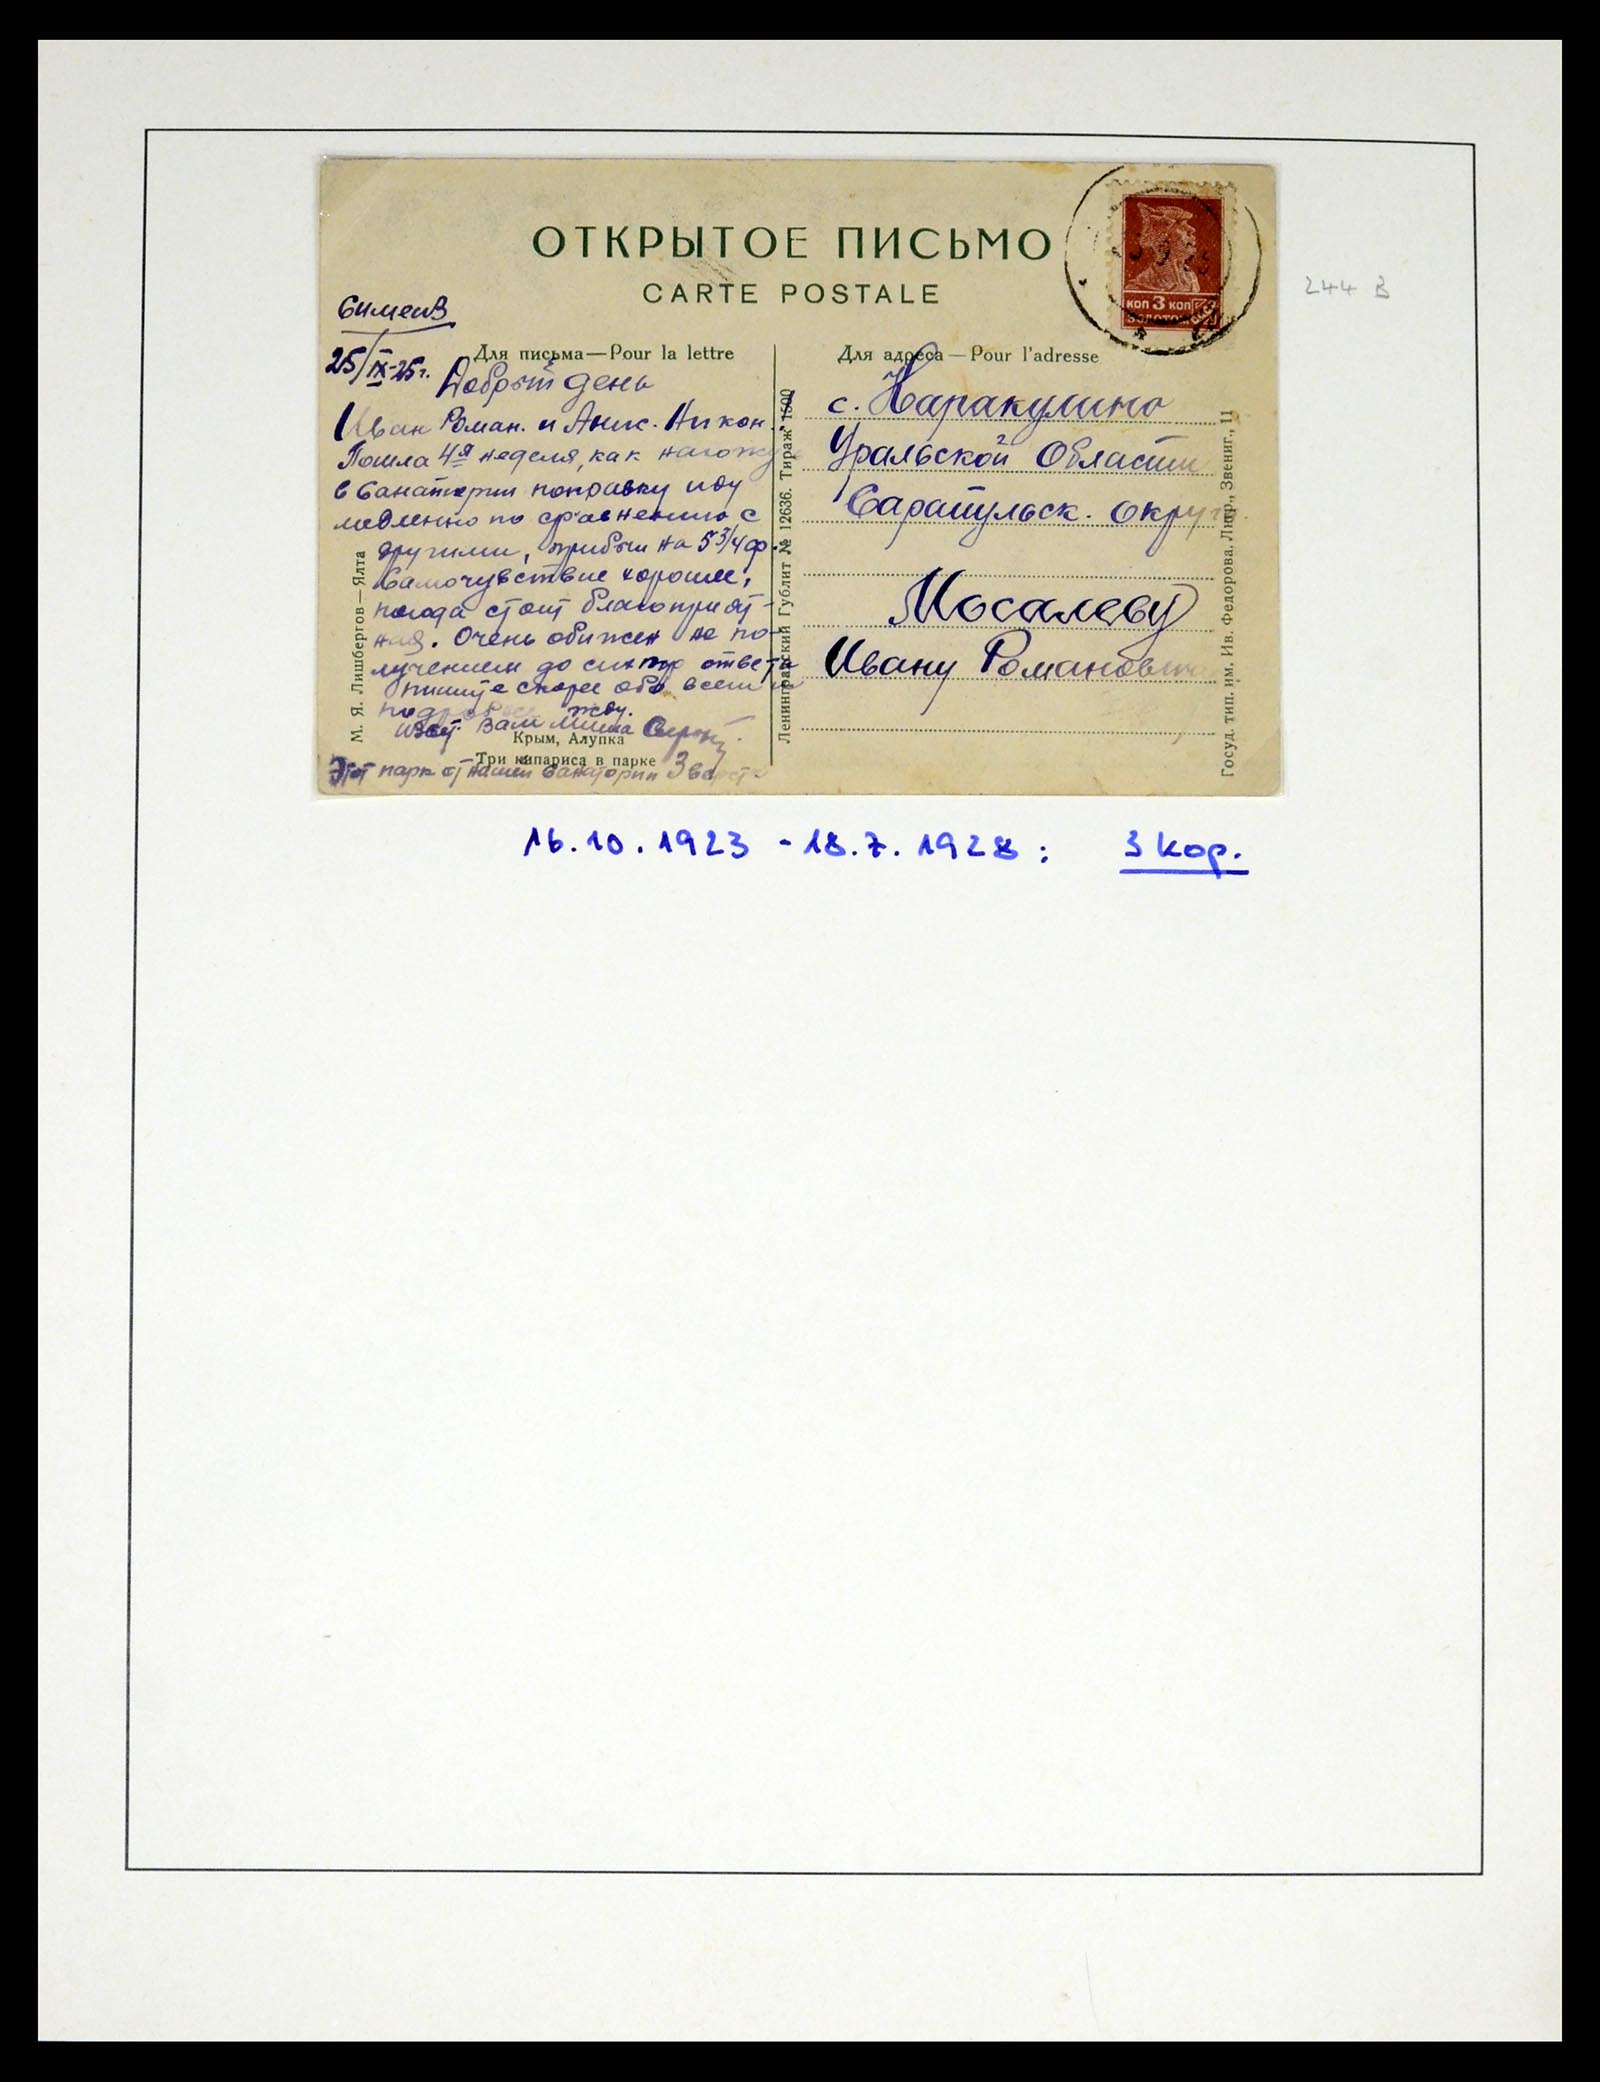 ОТКРЫТОЕ ПИСЬМО
CARTE POSTALE
Симеиз
25/IX-25г.
Для письма—Pour la lettre
Добрый день
Иван Роман. и Анис. Никон.
Пошла 4я неделя, как нахожу
в санатории поправку иду
медленно по сравнению с
другими, прибыл на 5 3/4 ф.
Самочувствие хорошее,
погода стоит благоприят-
ная. Очень обижен не по-
лучением до сих пор ответа
пишите скорее обо всем и
жду.
Вам Миша
Крым, Алупка
Три кипариса в парке
Этот парк от нашей санатории 3 верст
М. Я. Лишбергов—Ялта
Ленинградский Гублит № 12636. Тираж 1500
Для адреса—Pour l'adresse
с. Каракулино
Уральской Области
Сарапульск. округа
Мосалеву
Ивану Романовичу
Госуд. тип. им. Ив. Федорова. Лнгр., Звениг., 11
КОП 3 КОП
ЗОЛОТОМ
244 B
16.10.1923 - 18.7.1928: 3 kop.